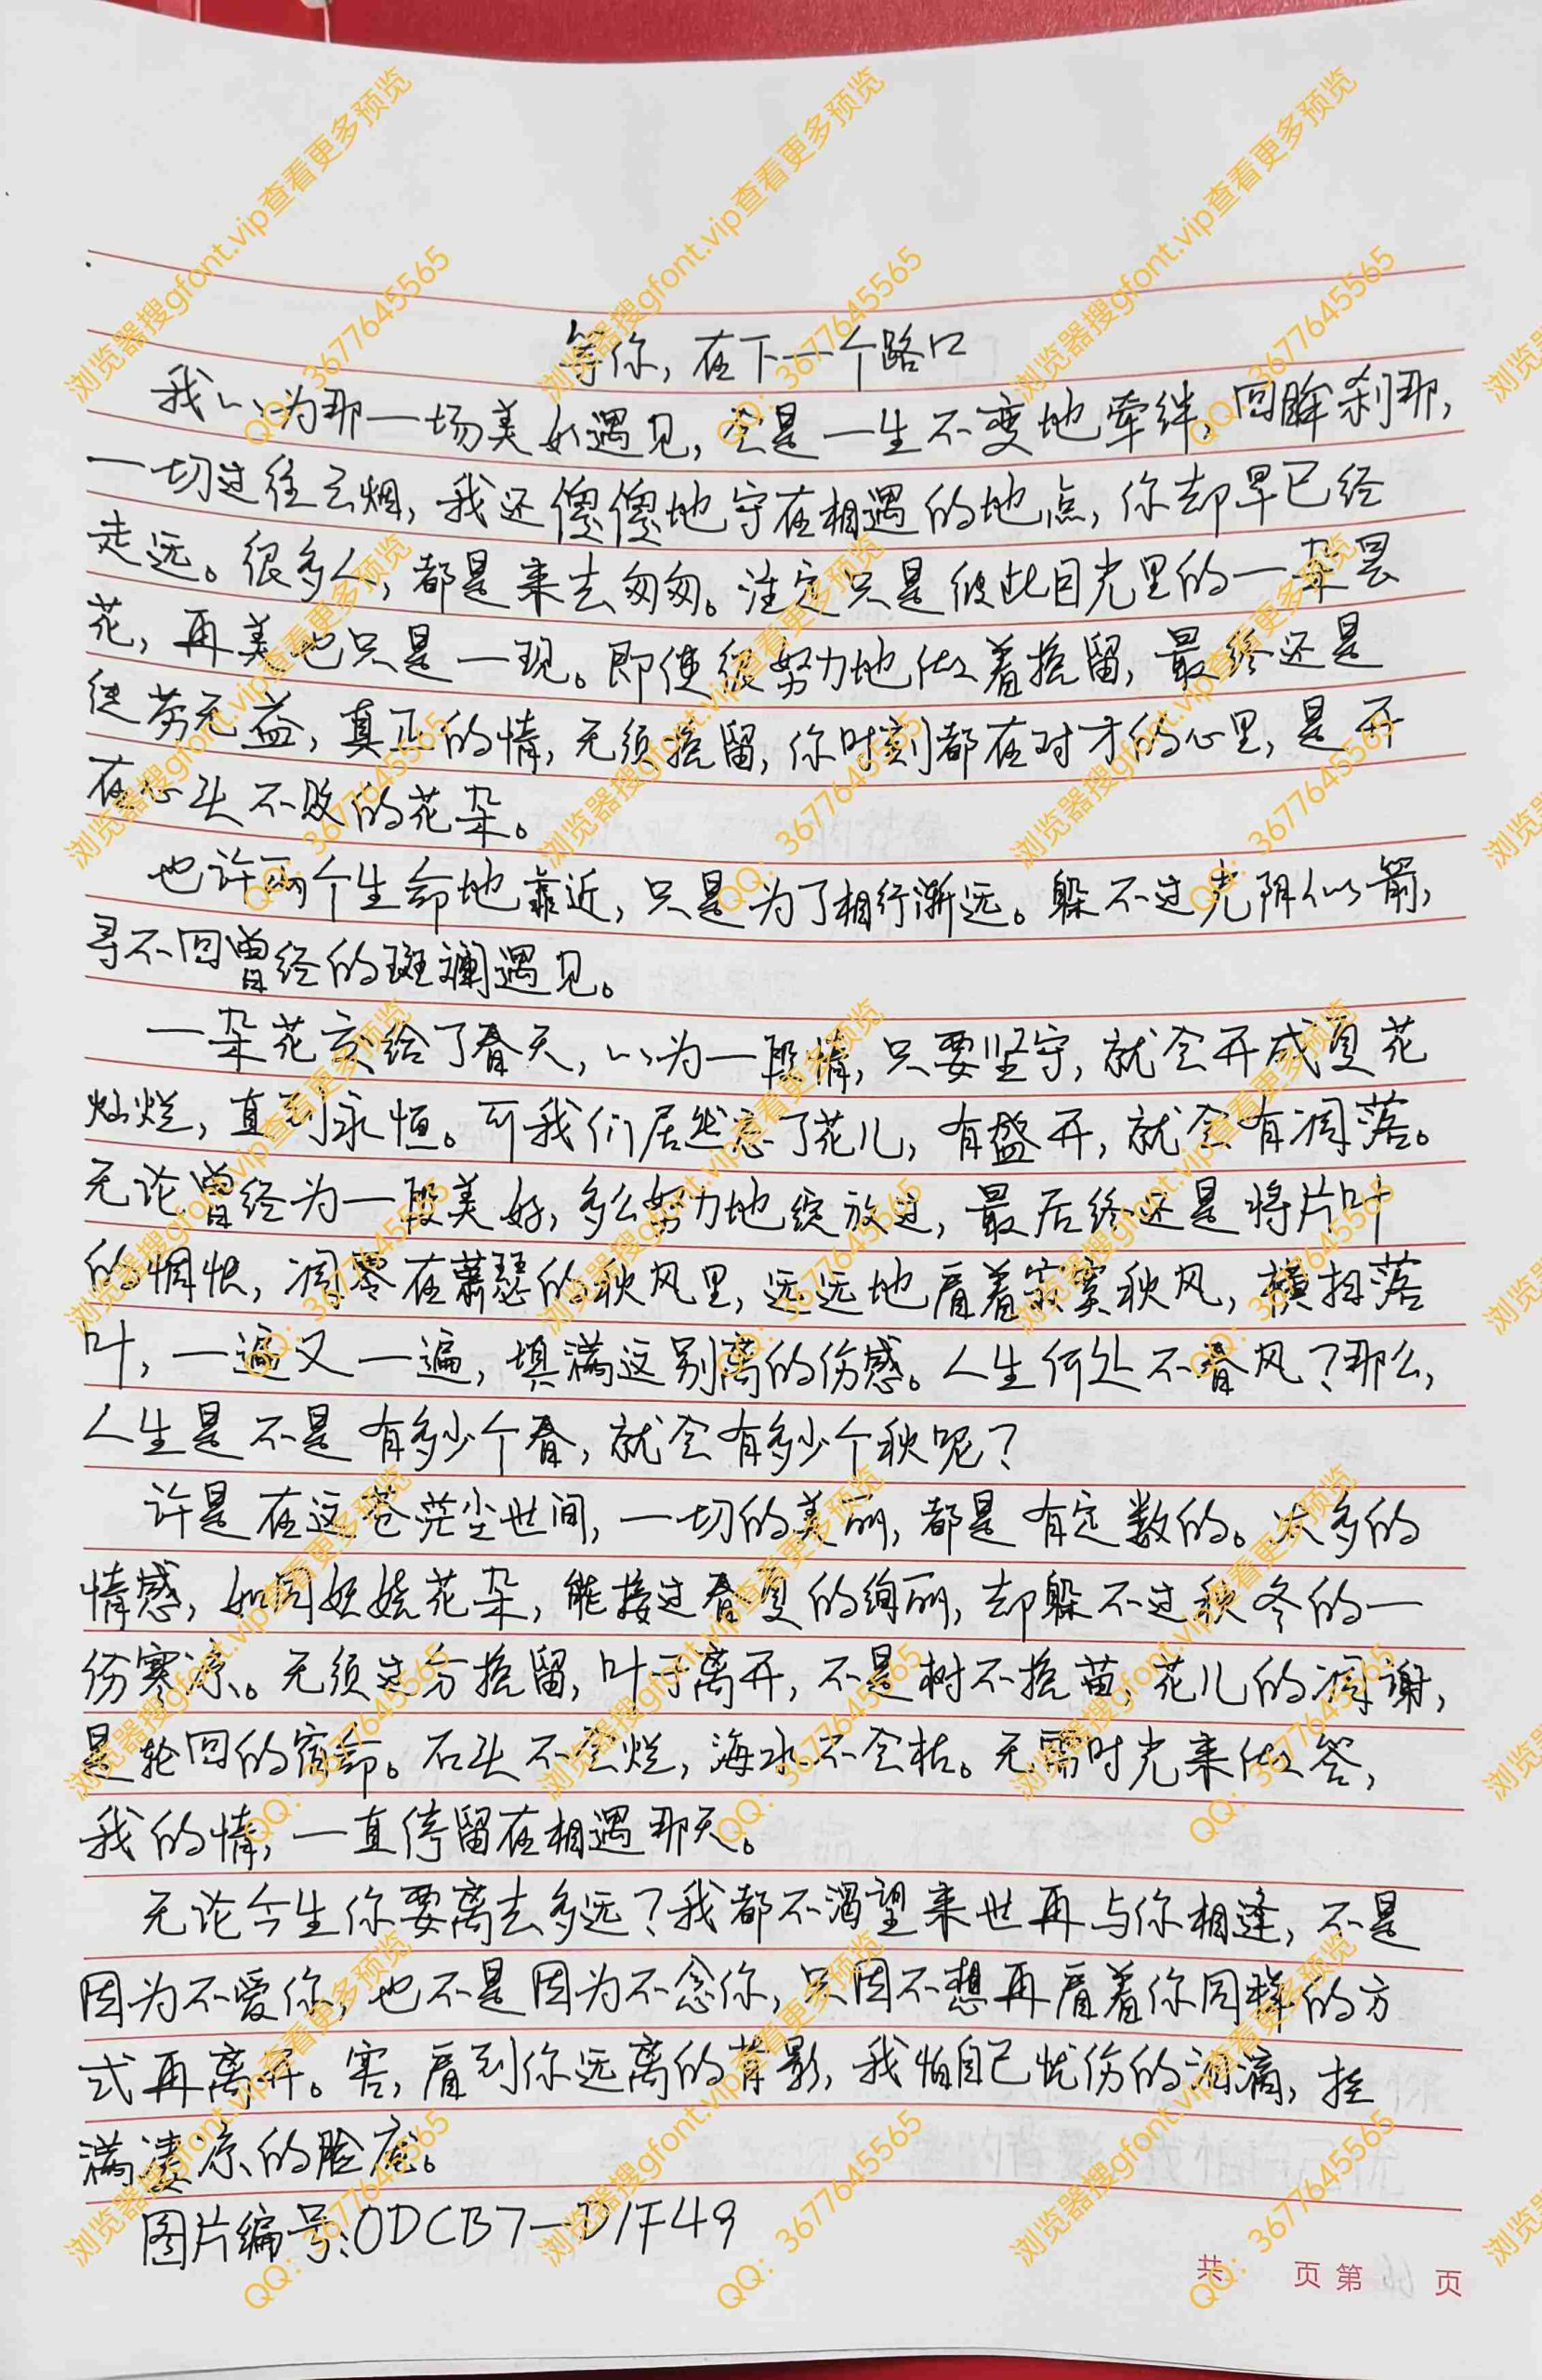 等你，在下一个路口
我以为那一场美好遇见，会是一生不变地牵绊，回眸刹那，
一切过往云烟，我还傻傻地守在相遇的地点，你却早已经
走远。很多人，都是来去匆匆。注定只是彼此目光里的一朵昙
花，再美也只是一现。即使很努力地做着挽留，最终还是
徒劳无益，真正的情，无须挽留，你时刻都在对方的心里，是开
在心头不败的花朵。
也许两个生命地靠近，只是为了相行渐远。躲不过光阴似箭，
寻不回曾经的斑斓遇见。
一朵花交给了春天，以为一段情，只要坚守，就会开成夏花
灿烂，直到永恒。可我们居然忘了花儿，有盛开，就会有凋落。
无论曾经为一段美好，多么努力地绽放过，最后终还是将片叶
的惆怅，凋零在萧瑟的秋风里，远远地看着寂寞秋风，横扫落
叶，一遍又一遍，填满这别离的伤感。人生何处不春风？那么，
人生是不是有多少个春，就会有多少个秋呢？
许是在这苍茫尘世间，一切的美丽，都是有定数的。太多的
情感，如同妖娆花朵，能接过春夏的绚丽，却躲不过秋冬的一
份寒凉。无须过分挽留，叶子离开，不是树不挽苗，花儿的凋谢，
是轮回的宿命。石头不会烂，海水不会枯。无需时光来做答，
我的情，一直停留在相遇那天。
无论今生你要离去多远？我都不渴望来世再与你相逢，不是
因为不爱你，也不是因为不念你，只因不想再看着你同样的方
式再离开。害，看到你远离的背影，我怕自己忧伤的泪滴，挂
满凄凉的脸庞。
图片编号：0DCB7-D1F49
共 页 第 页
浏览器搜gfont.vip查看更多预览
QQ：3677645565